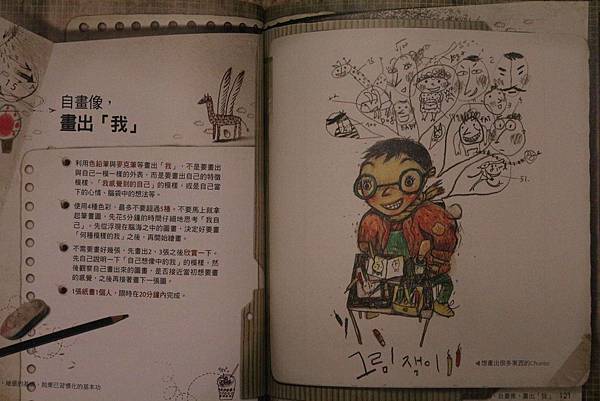 自畫像，
畫出「我」
利用色鉛筆與麥克筆等畫出「我」，不是要畫出
與自己一模一樣的外表，而是要畫出自己的特徵
模樣，「我感覺到的自己」的模樣，或是自己當
下的心情、腦袋中的想法等。
使用4種色彩，最多不要超過5種。不要馬上就拿
起筆畫圖，先花5分鐘的時間仔細地思考「我自
己」。先從浮現在腦海之中的圖畫，決定好要畫
「何種模樣的我」之後，再開始繪畫。
不需要畫好幾張，先畫出2、3張之後欣賞一下。
先自己說明一下「自己想像中的我」的模樣，然
後觀察自己畫出來的圖畫，是否接近當初想要畫
的感覺，之後再接著畫下一張圖。
1張紙畫1個人，限時在20分鐘內完成。
的基本，拋棄已習慣化的基本功
그림쟁이
想畫出很多東西的Chunto
自畫像，畫出「我」 121